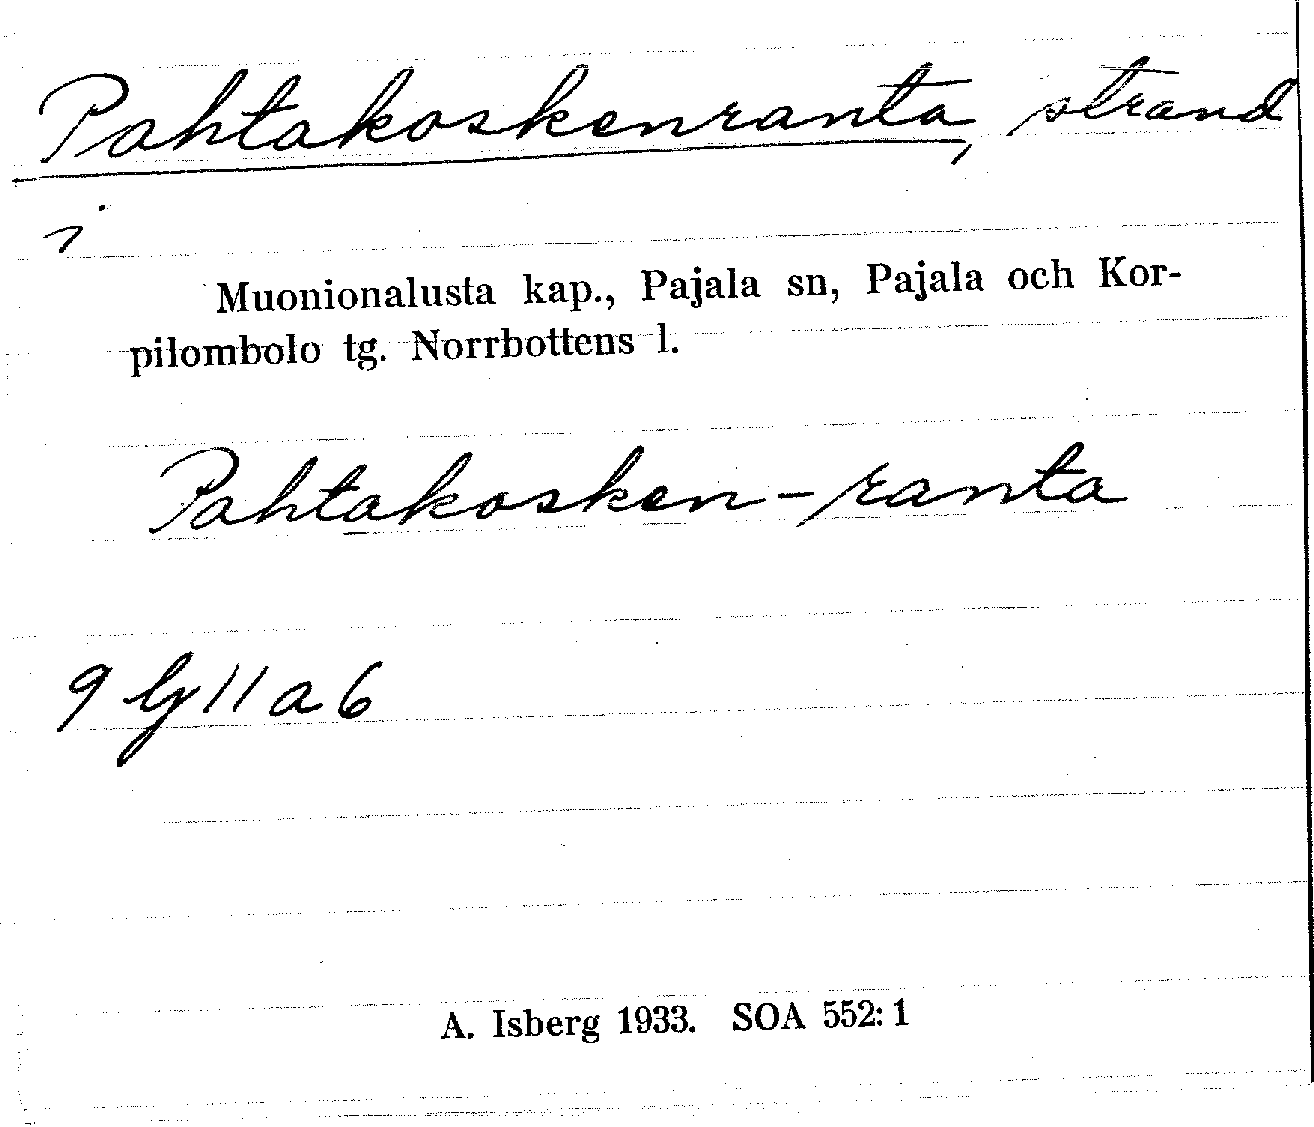 Pahtakoskenranta, strand
i
Muonionalusta kap., Pajala sn, Pajala och Kor-
pilombolo tg. Norrbottens l.
Pahtakosken-ranta
9 lj 11 a 6
A. Isberg 1933. SOA 552: 1